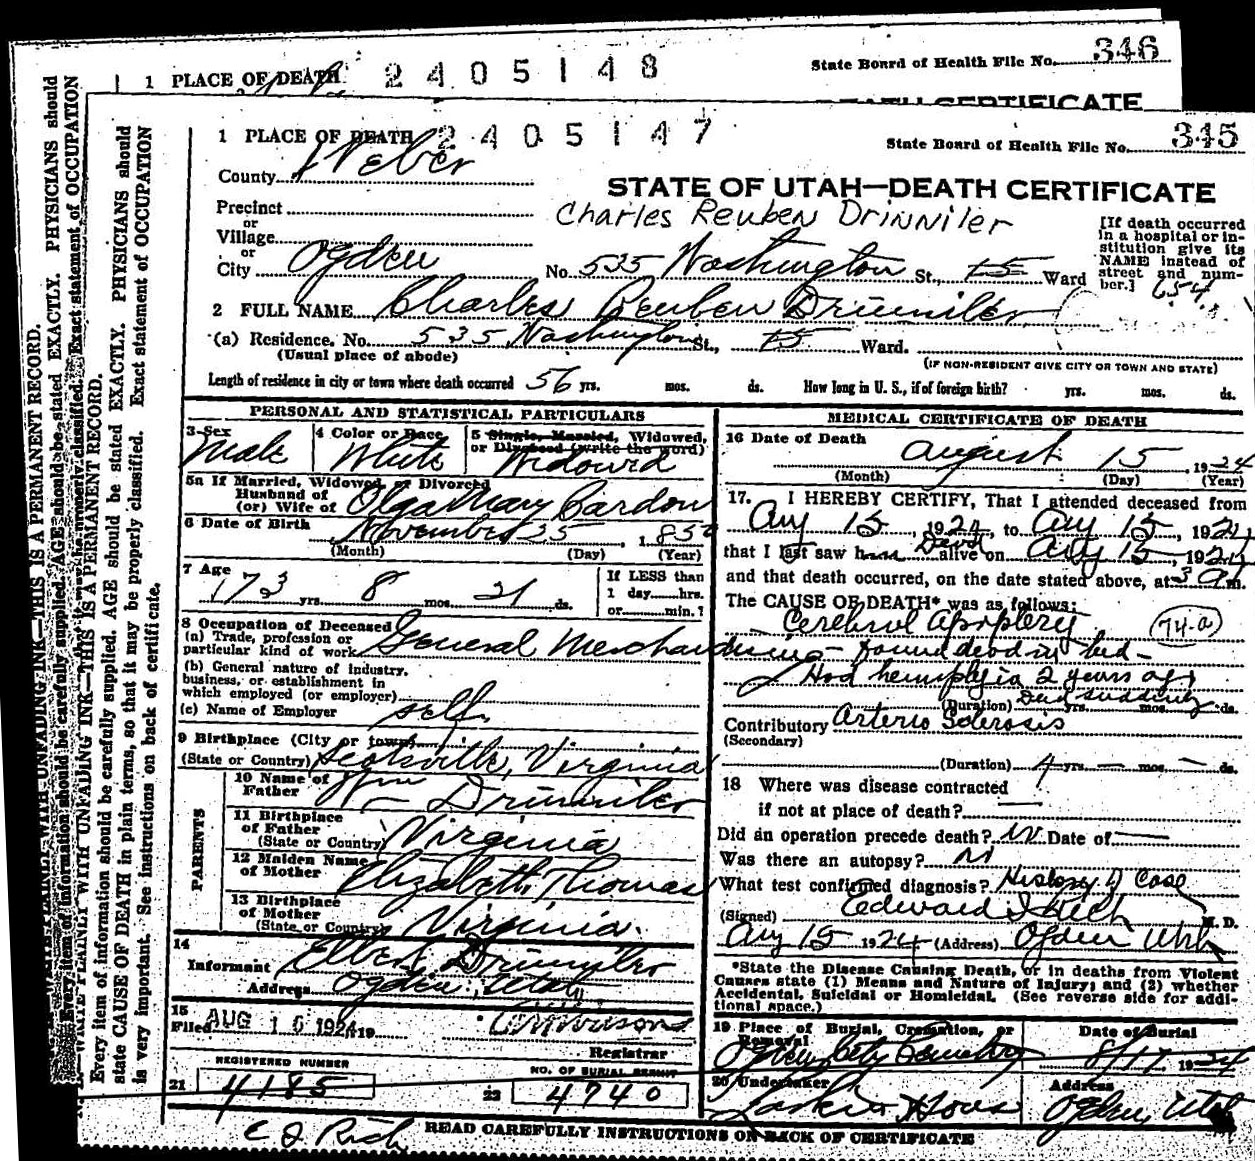 1 PLACE OF DEATH 2405148
State Board of Health File No. 346
DEATH CERTIFICATE
1 PLACE OF DEATH 2405147
State Board of Health File No. 345
County Weber
STATE OF UTAH—DEATH CERTIFICATE
Precinct
Charles Reuben Drinniler
or
Village
or
City Ogden No. 535 Washington St., Ward
[If death occurred in a hospital or institution give its NAME instead of street and number.] 654
2 FULL NAME Charles Reuben Drinniler
(a) Residence. No. 535 Washington St., Ward.
(Usual place of abode)
(IF NON-RESIDENT GIVE CITY OR TOWN AND STATE)
Length of residence in city or town where death occurred 56 yrs. mos. ds. How long in U. S., if of foreign birth? yrs. mos. ds.
PERSONAL AND STATISTICAL PARTICULARS
3 Sex Male
4 Color or Race White
5 Single, Married, Widowed, or Divorced (write the word) Widowed
5a If Married, Widowed or Divorced
Husband of
(or) Wife of Olga Mary Cardon
6 Date of Birth November 25, 1850
(Month) (Day) (Year)
7 Age 73 yrs. 8 mos. 21 ds.
If LESS than
1 day hrs.
or min.?
8 Occupation of Deceased
(a) Trade, profession or
particular kind of work General Merchandising
(b) General nature of industry,
business, or establishment in
which employed (or employer)
(c) Name of Employer self
9 Birthplace (City or town)
(State or Country) Scotsville, Virginia
PARENTS
10 Name of
Father Wm Drinniler
11 Birthplace
of Father
(State or Country) Virginia
12 Maiden Name
of Mother Elizabeth Thomas
13 Birthplace
of Mother
(State or Country) Virginia.
14
Informant Elbert Drinniler
Address Ogden, Utah
15
Filed AUG 16 1924 19
Registrar
REGISTERED NUMBER
21 4185
NO. OF BURIAL PERMIT
22 4740
MEDICAL CERTIFICATE OF DEATH
16 Date of Death August 15, 1924
(Month) (Day) (Year)
17. I HEREBY CERTIFY, That I attended deceased from
Aug 15, 1924, to Aug 15, 1924,
that I last saw him Dead alive on Aug 15, 1924
and that death occurred, on the date stated above, at 3 a m.
The CAUSE OF DEATH* was as follows:
Cerebral apoplexy (74-a)
found dead in bed-
Had hemiplegia 2 years ago
Died suddenly
(Duration) yrs. mos. ds.
Contributory Arterio Sclerosis
(Secondary)
(Duration) 4 yrs. — mos. — ds.
18 Where was disease contracted
if not at place of death?
Did an operation precede death? no Date of
Was there an autopsy? no
What test confirmed diagnosis? History of Case
(Signed) Edward I Rich M. D.
Aug 15 1924 (Address) Ogden Utah
*State the Disease Causing Death, or in deaths from Violent
Causes state (1) Means and Nature of Injury; and (2) whether
Accidental, Suicidal or Homicidal. (See reverse side for additional space.)
19 Place of Burial, Cremation, or Removal Ogden City Cemetery
Date of Burial 8/17 1924
20 Undertaker Larkin & Sons
Address Ogden, Utah
E I Rich
READ CAREFULLY INSTRUCTIONS ON BACK OF CERTIFICATE
WRITE PLAINLY WITH UNFADING INK—THIS IS A PERMANENT RECORD.
Every item of information should be carefully supplied. AGE should be stated EXACTLY. PHYSICIANS should
state CAUSE OF DEATH in plain terms, so that it may be properly classified. Exact statement of OCCUPATION
is very important. See instructions on back of certificate.